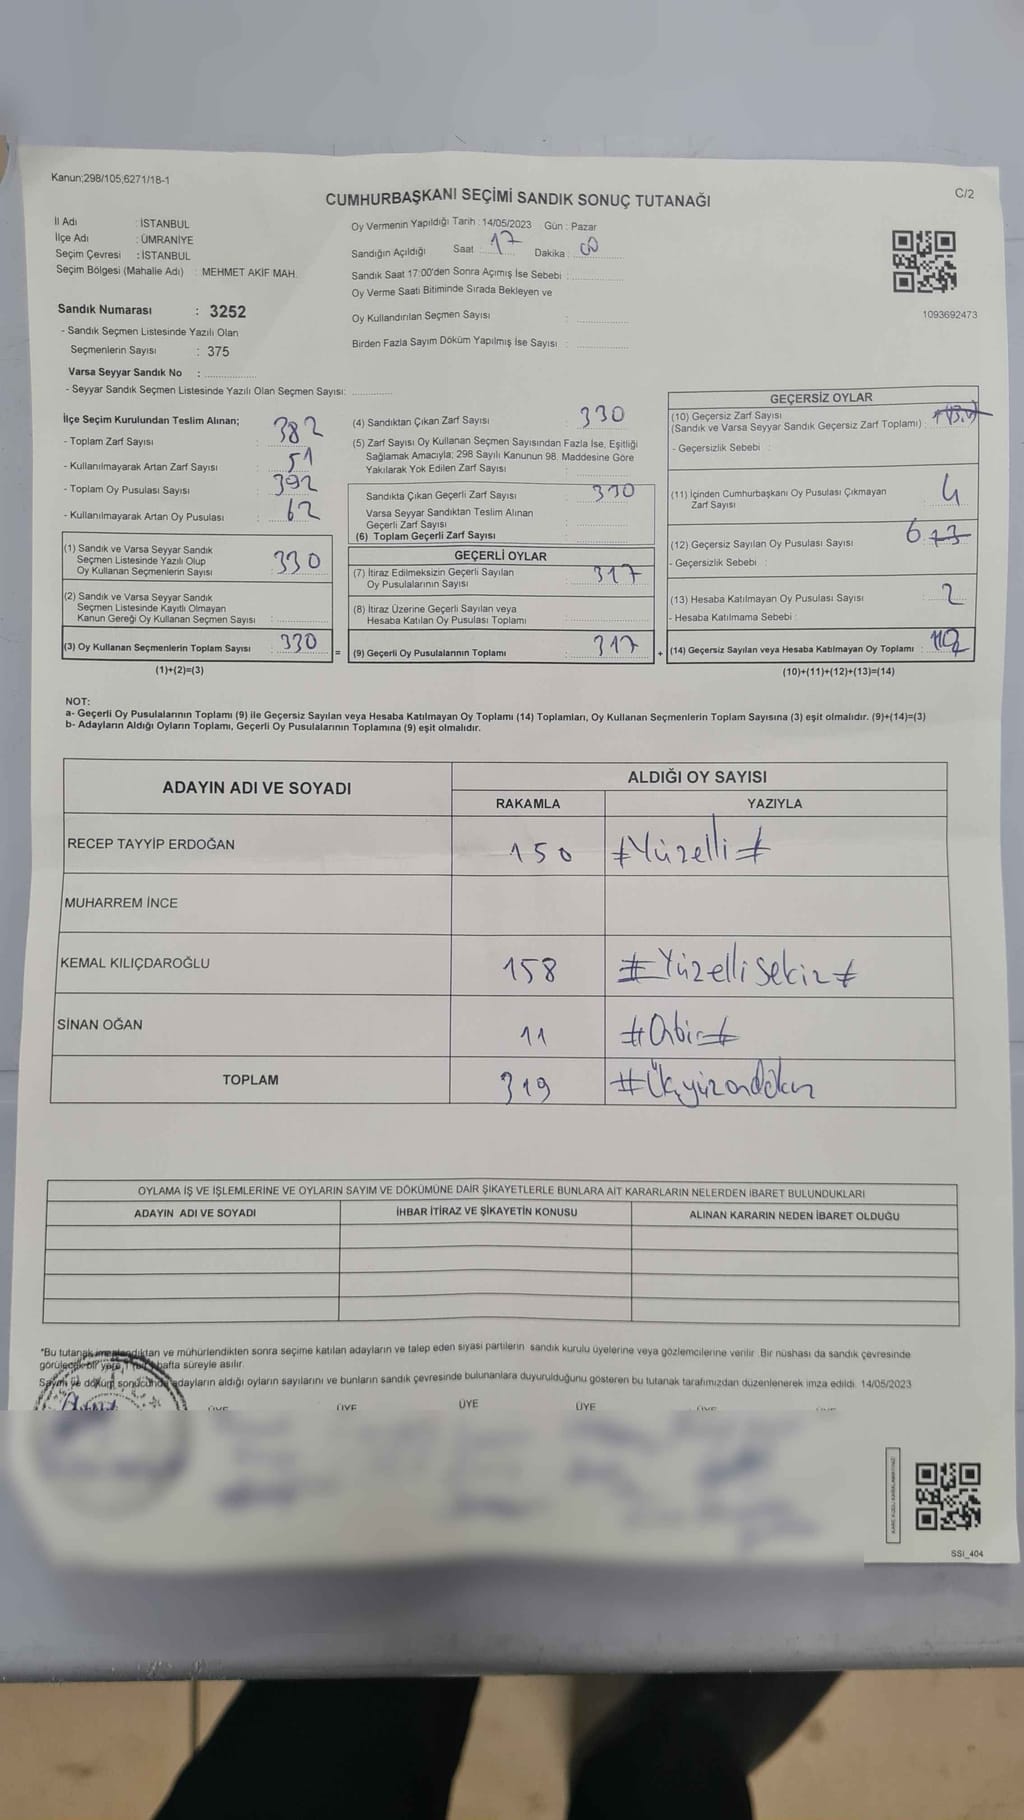 Kanun;298/105,6271/18-1
C/2
CUMHURBAŞKANI SEÇİMİ SANDIK SONUÇ TUTANAĞI
İl Adı : İSTANBUL
İlçe Adı : ÜMRANİYE
Seçim Çevresi : İSTANBUL
Seçim Bölgesi (Mahalle Adı) : MEHMET AKİF MAH.
Oy Vermenin Yapıldığı Tarih : 14/05/2023 Gün : Pazar
Sandığın Açıldığı Saat : 17 Dakika :
Sandık Saat 17:00'den Sonra Açımış İse Sebebi :
Oy Verme Saati Bitiminde Sırada Bekleyen ve
Oy Kullandırılan Seçmen Sayısı :
Birden Fazla Sayım Döküm Yapılmış İse Sayısı :
1093692473
Sandık Numarası : 3252
- Sandık Seçmen Listesinde Yazılı Olan
Seçmenlerin Sayısı : 375
Varsa Seyyar Sandık No :
- Seyyar Sandık Seçmen Listesinde Yazılı Olan Seçmen Sayısı:
İlçe Seçim Kurulundan Teslim Alınan;
- Toplam Zarf Sayısı : 382
- Kullanılmayarak Artan Zarf Sayısı : 51
- Toplam Oy Pusulası Sayısı : 392
- Kullanılmayarak Artan Oy Pusulası : 62
(1) Sandık ve Varsa Seyyar Sandık
Seçmen Listesinde Yazılı Olup
Oy Kullanan Seçmenlerin Sayısı : 330
(2) Sandık ve Varsa Seyyar Sandık
Seçmen Listesinde Kayıtlı Olmayan
Kanun Gereği Oy Kullanan Seçmen Sayısı :
(3) Oy Kullanan Seçmenlerin Toplam Sayısı : 330
(1)+(2)=(3)
=
(4) Sandıktan Çıkan Zarf Sayısı : 330
(5) Zarf Sayısı Oy Kullanan Seçmen Sayısından Fazla İse, Eşitliği
Sağlamak Amacıyla; 298 Sayılı Kanunun 98. Maddesine Göre
Yakılarak Yok Edilen Zarf Sayısı :
Sandıkta Çıkan Geçerli Zarf Sayısı : 330
Varsa Seyyar Sandıktan Teslim Alınan
Geçerli Zarf Sayısı :
(6) Toplam Geçerli Zarf Sayısı :
GEÇERLİ OYLAR
(7) İtiraz Edilmeksizin Geçerli Sayılan
Oy Pusulalarının Sayısı : 317
(8) İtiraz Üzerine Geçerli Sayılan veya
Hesaba Katılan Oy Pusulası Toplamı :
(9) Geçerli Oy Pusulalarının Toplamı : 317
+
GEÇERSİZ OYLAR
(10) Geçersiz Zarf Sayısı
(Sandık ve Varsa Seyyar Sandık Geçersiz Zarf Toplamı) :
- Geçersizlik Sebebi :
(11) İçinden Cumhurbaşkanı Oy Pusulası Çıkmayan
Zarf Sayısı : 4
(12) Geçersiz Sayılan Oy Pusulası Sayısı : 6
- Geçersizlik Sebebi :
(13) Hesaba Katılmayan Oy Pusulası Sayısı : 2
- Hesaba Katılmama Sebebi :
(14) Geçersiz Sayılan veya Hesaba Katılmayan Oy Toplamı :
(10)+(11)+(12)+(13)=(14)
NOT:
a- Geçerli Oy Pusulalarının Toplamı (9) ile Geçersiz Sayılan veya Hesaba Katılmayan Oy Toplamı (14) Toplamları, Oy Kullanan Seçmenlerin Toplam Sayısına (3) eşit olmalıdır. (9)+(14)=(3)
b- Adayların Aldığı Oyların Toplamı, Geçerli Oy Pusulalarının Toplamına (9) eşit olmalıdır.
ADAYIN ADI VE SOYADI
ALDIĞI OY SAYISI
RAKAMLA YAZIYLA
RECEP TAYYİP ERDOĞAN 150 #Yüzelli#
MUHARREM İNCE
KEMAL KILIÇDAROĞLU 158 #Yüzellisekiz#
SİNAN OĞAN 11 #Onbir#
TOPLAM 319 #Üçyüzondokuz
OYLAMA İŞ VE İŞLEMLERİNE VE OYLARIN SAYIM VE DÖKÜMÜNE DAİR ŞİKAYETLERLE BUNLARA AİT KARARLARIN NELERDEN İBARET BULUNDUKLARI
ADAYIN ADI VE SOYADI İHBAR İTİRAZ VE ŞİKAYETİN KONUSU ALINAN KARARIN NEDEN İBARET OLDUĞU
*Bu tutanak imzalandıktan ve mühürlendikten sonra seçime katılan adayların ve talep eden siyasi partilerin sandık kurulu üyelerine veya gözlemcilerine verilir. Bir nüshası da sandık çevresinde
görülecek bir yere 1 (bir) hafta süreyle asılır.
Sayım ve döküm sonucunda adayların aldığı oyların sayılarını ve bunların sandık çevresinde bulunanlara duyurulduğunu gösteren bu tutanak tarafımızdan düzenlenerek imza edildi. 14/05/2023
ÜYE ÜYE ÜYE ÜYE ÜYE
SSI_404